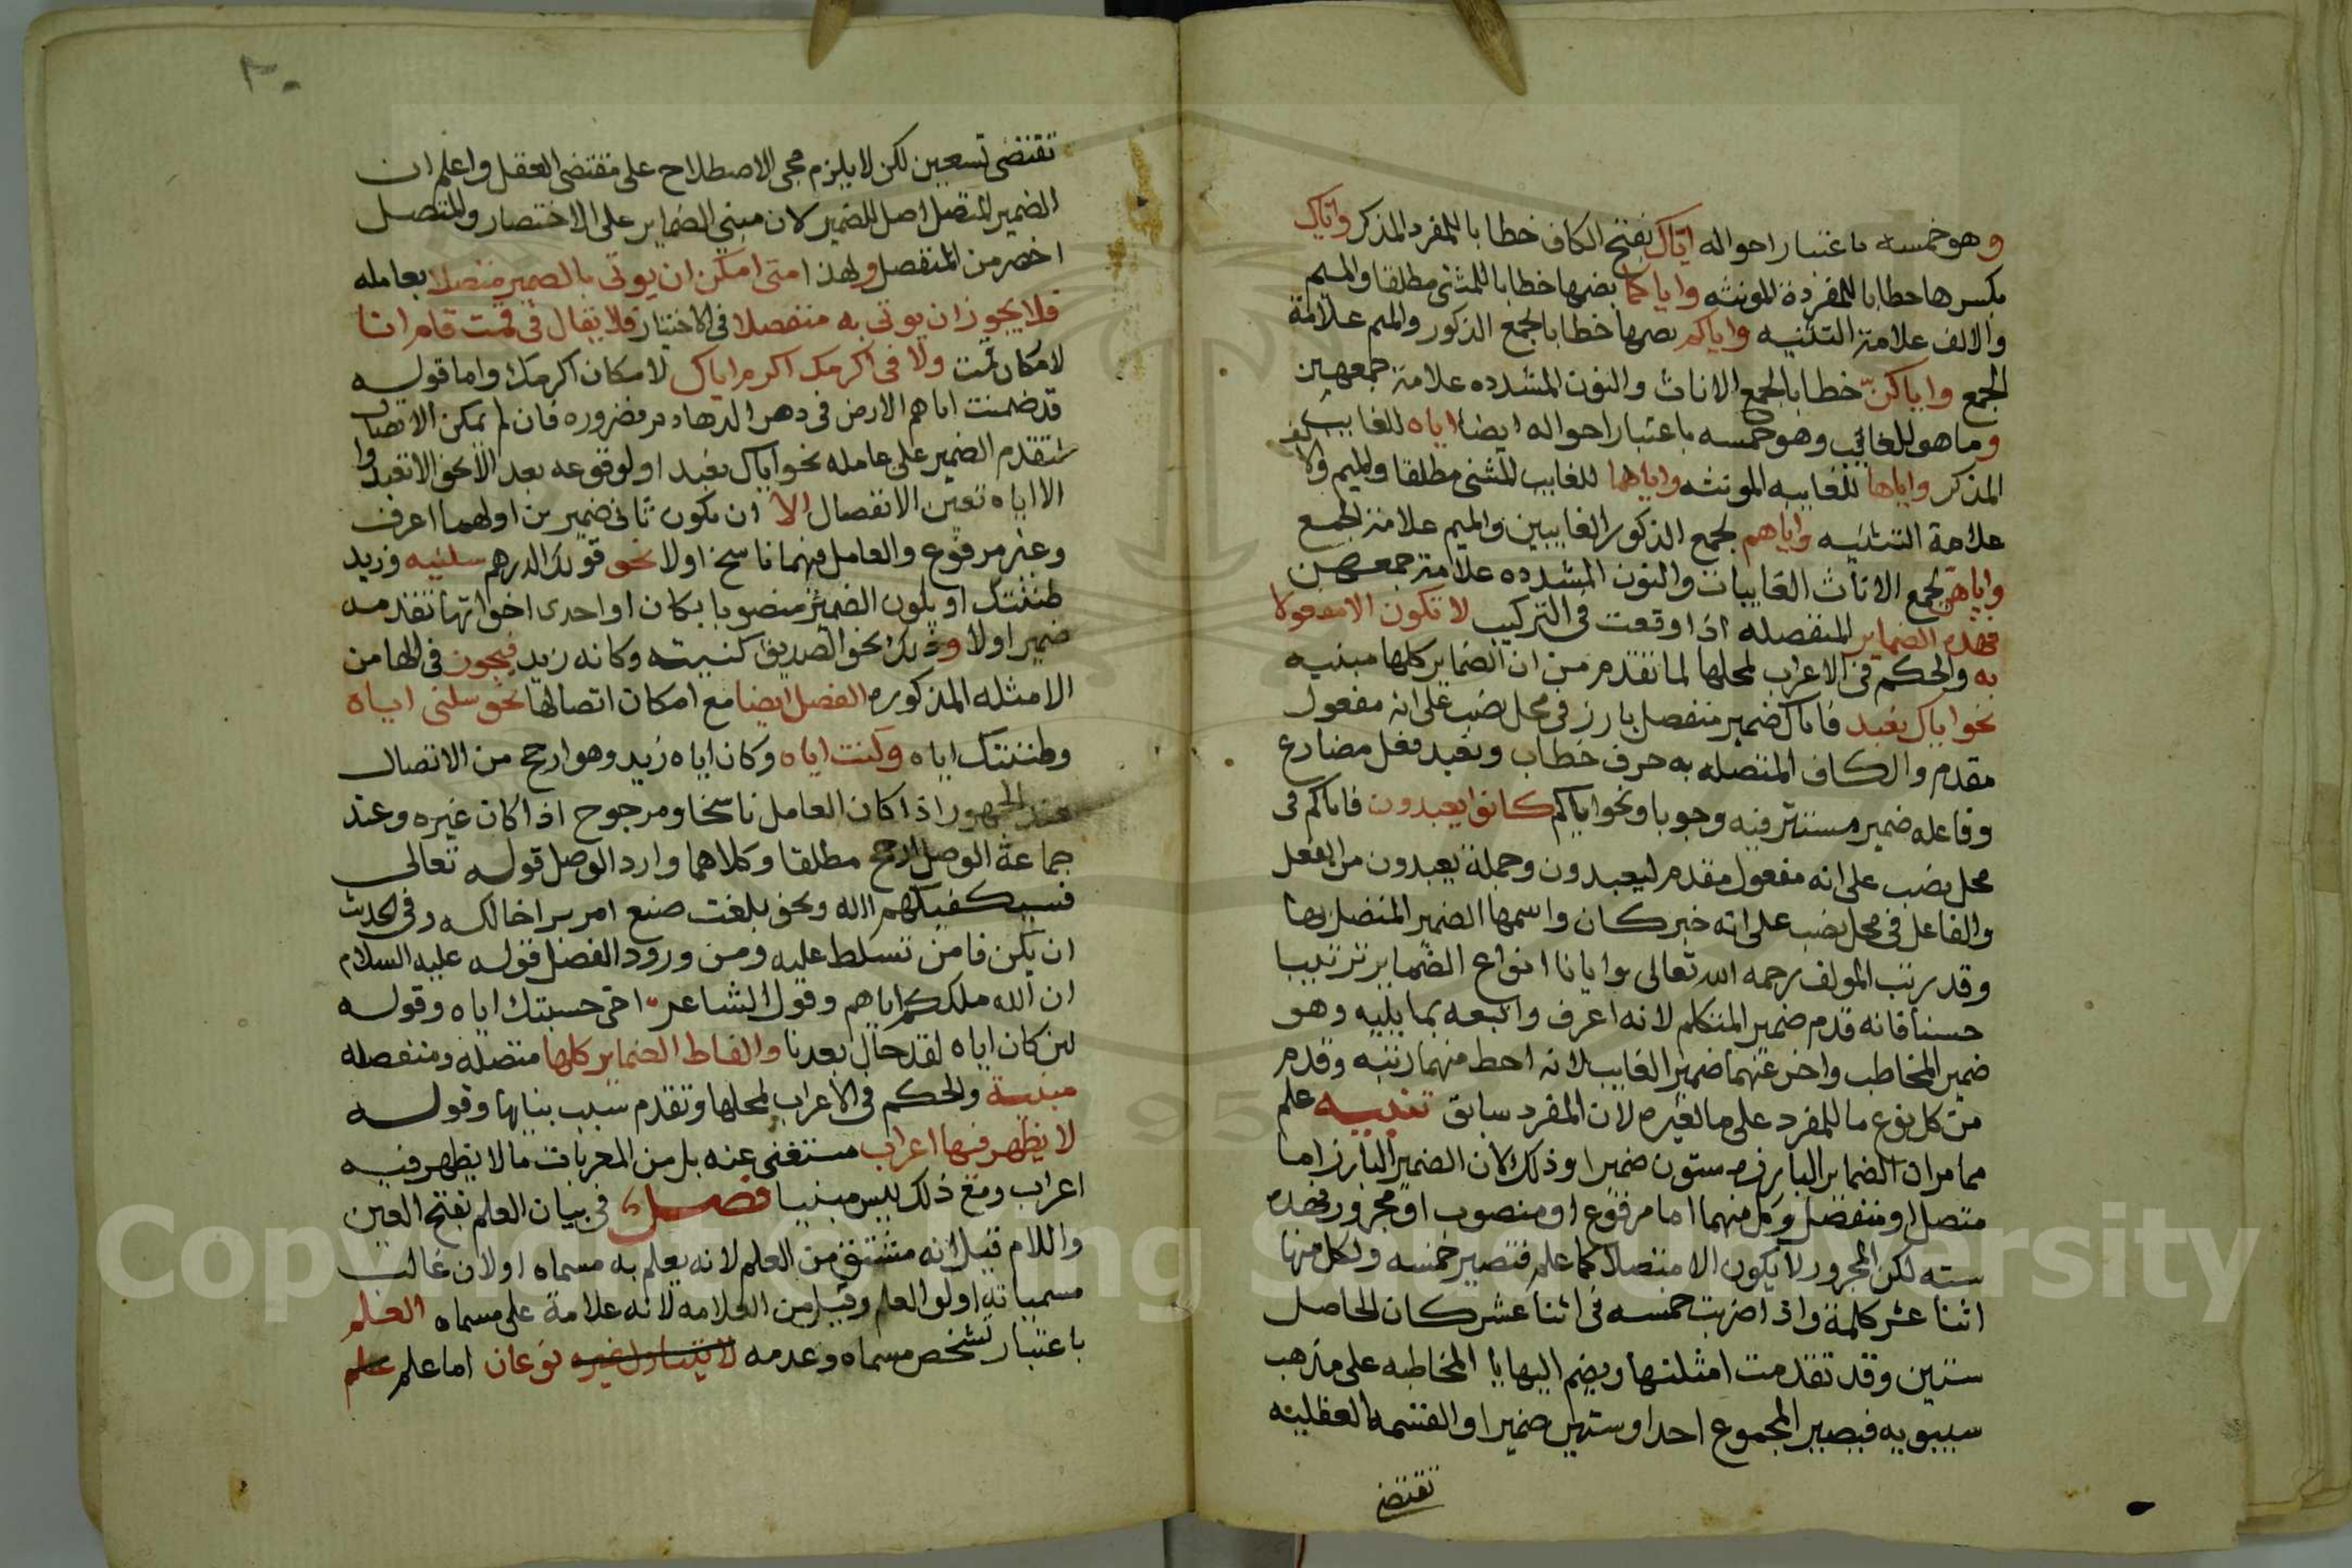 وهو خمسه باعتبار احواله اياك بفتح الكاف خطابا للمفرد المذكر واياك
بكسرها خطابا للمفردة المونثه واياكما بضمها خطابا للمثنى مطلقا والميم
والالف علامة التثنيه واياكم بضمها خطابا لجمع الذكور والميم علامة
الجمع واياكنّ خطابا لجمع الاناث والنون المشدده علامة جمعهن
وما هو للغائب وهو خمسه باعتبار احواله ايضا اياه للغايب
المذكر واياها للغايبه المونثه واياهما للغايب المثنى مطلقا والميم والالف
علامة التثنيه واياهم لجمع الذكور الغايبين والميم علامة الجمع
واياهن لجمع الاناث الغايبات والنون المشدده علامة جمعهن
فهذه الضماير المنفصله اذا وقعت فى التركيب لا تكون الا مفعولا
به والحكم فى الاعراب لمحلها لما تقدم من ان الضماير كلها مبنيه
نحو اياك نعبد فاياك ضمير منفصل بارز فى محل نصب على انه مفعول
مقدم والكاف المتصله به حرف خطاب ونعبد فعل مضارع
وفاعله ضمير مستتر فيه وجوبا ونحو اياكم كانوا يعبدون فاياكم فى
محل نصب على انه مفعول مقدم ليعبدون وجملة يعبدون من الفعل
والفاعل فى محل نصب على انه خبر كان واسمها الضمير المتصل بها
وقد رتب المولف رحمه الله تعالى وايانا انواع الضماير ترتيبا
حسنا فانه قدم ضمير المتكلم لانه اعرف واتبعه بما يليه وهو
ضمير المخاطب واخر عنهما ضمير الغايب لانه احط منهما رتبه وقدم
من كل نوع ما للمفرد على ما لغيره لان المفرد سابق تنبيه علم
مما مر ان الضماير البارزه ستون ضميرا وذلك لان الضمير البارز اما
متصل او منفصل وكل منهما اما مرفوع او منصوب او مجرور فهذه
سته لكن المجرور لا يكون الا متصلا كما علم فتصير خمسه ولكل منها
اثنا عشر كلمة واذا ضربت خمسه فى اثنا عشر كان الحاصل
ستين وقد تقدمت امثلتها ويضم اليها يا المخاطبه على مذهب
سيبويه فيصير المجموع احدا وستين ضميرا والقسمه العقليه
تقتضى
٢٠
تقتضى تسعين لكن لا يلزم مجى الاصطلاح على مقتضى العقل واعلم ان
الضمير المتصل اصل للضمير لان مبنى الضماير على الاختصار والمتصل
اخصر من المنفصل ولهذا متى امكن ان يوتى بالضمير متصلا بعامله
فلا يجوز ان يوتى به منفصلا فى الاختيار فلا يقال فى قمت قام انا
لامكان قمت ولا فى اكرمك اكرم اياك لامكان اكرمك واما قوله
قد ضمنت اياهم الارض فى دهر الدهادير فضروره فان لم يمكن الاتصال
لتقدم الضمير على عامله نحو اياك نعبد او لوقوعه بعد الا نحو الا تعبدوا
الا اياه تعين الانفصال الا ان يكون ثانى ضميرين اولهما اعرف
وغير مرفوع والعامل فيهما ناسخ اولا نحو قولك الدرهم سلنيه وزيد
ظننتك او يكون الضمير منصوبا بكان او احدى اخواتها تقدمه
ضمير اولا وذلك نحو الصديق كنيته وكانه زيد فيجوز فى الها من
الامثله المذكوره الفصل ايضا مع امكان اتصالها نحو سلنى اياه
وظننتك اياه وكنت اياه وكان اياه زيد وهو ارجح من الاتصال
عند الجمهور اذا كان العامل ناسخا ومرجوح اذا كان غيره وعند
جماعة الوصل ارجح مطلقا وكلاهما وارد الوصل قوله تعالى
فسيكفيكهم الله ونحو بلغت صنع امر بر اخالكه وفى الحديث
ان يكن فامن تسلط عليه ومن ورود الفصل قوله عليه السلام
ان الله ملككم اياهم وقول الشاعر اخى حسبتك اياه وقوله
لين كان اياه لقد حال بعدنا والفاظ الضماير كلها متصله ومنفصله
مبنية والحكم فى الاعراب لمحلها وتقدم سبب بنايها وقوله
لا يظهر فيها اعراب مستغنى عنه بل من المعربات ما لا يظهر فيه
اعراب ومع ذلك ليس مبنيا فصل فى بيان العلم بفتح العين
واللام قيل انه مشتق من العلم لانه يعلم به مسماه او لان غالب
مسمياته اولو العلم وقيل من العلامه لانه علامة على مسماه العلم
باعتبار تشخص مسماه وعدمه لا يتناول غيره نوعان اما علم علم